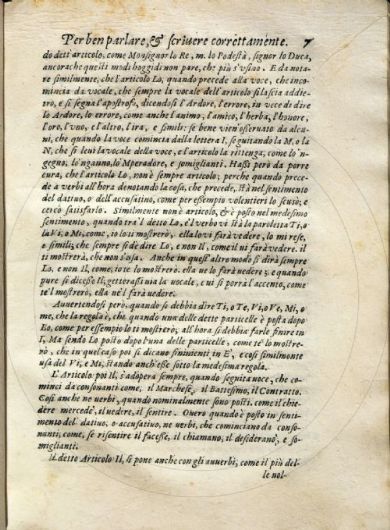 Per ben parlare, & scriuere correttamente. 7
do dett'articolo; come Monsignor lo Re, m. lo Podestà, signor lo Duca,
ancorache questi modi hoggidi non pare, che più s'vsino. E da nota-
re similmente, che l'articolo Lo, quando precede alla voce, che inco-
mincia da vocale, che sempre la vocale dell'articolo si lascia addie-
tro, e si segna l'apostrofo, dicendosi l'Ardore, l'errore, in vece di dire
lo Ardore, lo errore, come anche l'animo, l'amico, l'herba, l'honore,
l'oro, l'vuo, e l'altro, l'ira, e simili: se bene vien'osseruato da alcu-
ni, che quando la voce comincia dalla lettera I, seguitando la M, o la
N, che si leui la vocale della voce, e l'articolo la ritenga, come lo'n-
gegno, lo'nganno, lo'Mperadore, e somiglianti. Hassi però da porre
cura, che l'articolo Lo, non è sempre articolo; perche quando prece-
de a verbi all'hora denotando la cosa, che precede, stà nel sentimento
del datiuo, o dell'accusatiuo, come per essempio volentieri lo scusò; e
cercò satisfarlo. Similmente non è articolo, & è posto nel medesimo
sentimento, quando trà'l detto Lo, e'l verbo vi stà la parolezza Ti, o
la Vi, o Mi, come, io lo ti mostrerò, ella lo vi farà vedere, lo mi rese,
e simili; che sempre si dè dire Lo, e non Il, come il vi farà vedere. il ti
mostrerà, che non s'vsa. Anche in quest'altro modo si dirà sempre
Lo, e non Il, come, io te lo mostrerò. ella ue lo farà vedere; e quando
pure si dicesse Il, getterassi uia la vocale, e ui si porrà l'accento, come
te'l mostrerò, ella ue'l farà vedere.
Auuertendosi però, quando si debba dire Ti, o Te, Vi, o Ve, Mi, o
me, che la regola è, che quando una delle dette particelle è posta dopo
Lo, come per essempio lo ti mostrerò, all'hora si debbia farle finire in
I, Ma sendo Lo posto dopo l'una delle particelle, come te'lo mostre-
rò, che in quel caso poi si dicano finienti in E', e cosi similmente
usa del Vi, e Mi, stando anch'esse sotto la medesima regola.
L'Articolo poi Il, s'adopera sempre, quando seguita uoce, che co-
minci da consonanti come, il Marchese, il Battesimo, il Contratto.
Così anche ne uerbi, quando nominalmente sono posti, come il chie-
dere mercede, il uedere, il sentire. Ouero quando è posto in senti-
mento del datiuo, o accusatiuo, ne uerbi, che cominciano da conso-
nanti, come, se risentire il facesse, il chiamano, il desiderano, e so-
miglianti.
Il detto Articolo Il, si pone anche con gli auuerbi, come il più del-
le uol-